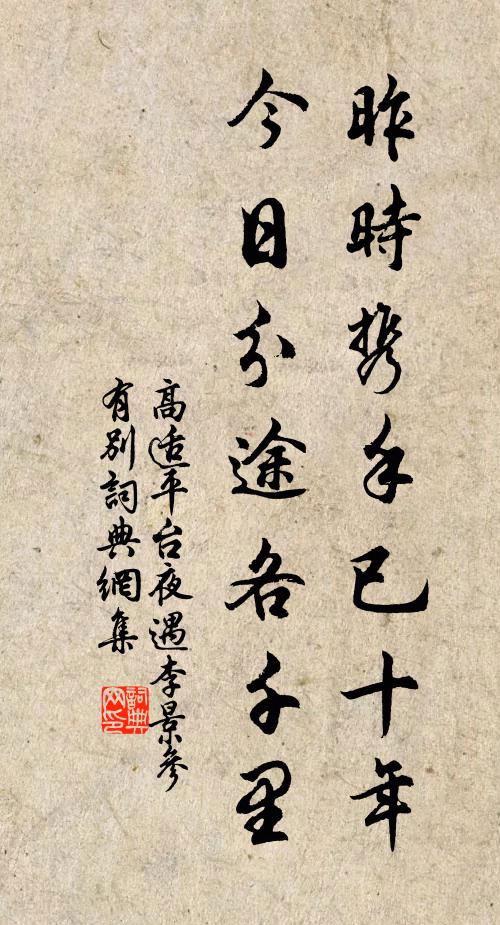 昨時携手已十年
今日分途各千里
高适平台夜遇李景參
有别詞典網集
詞典
网印